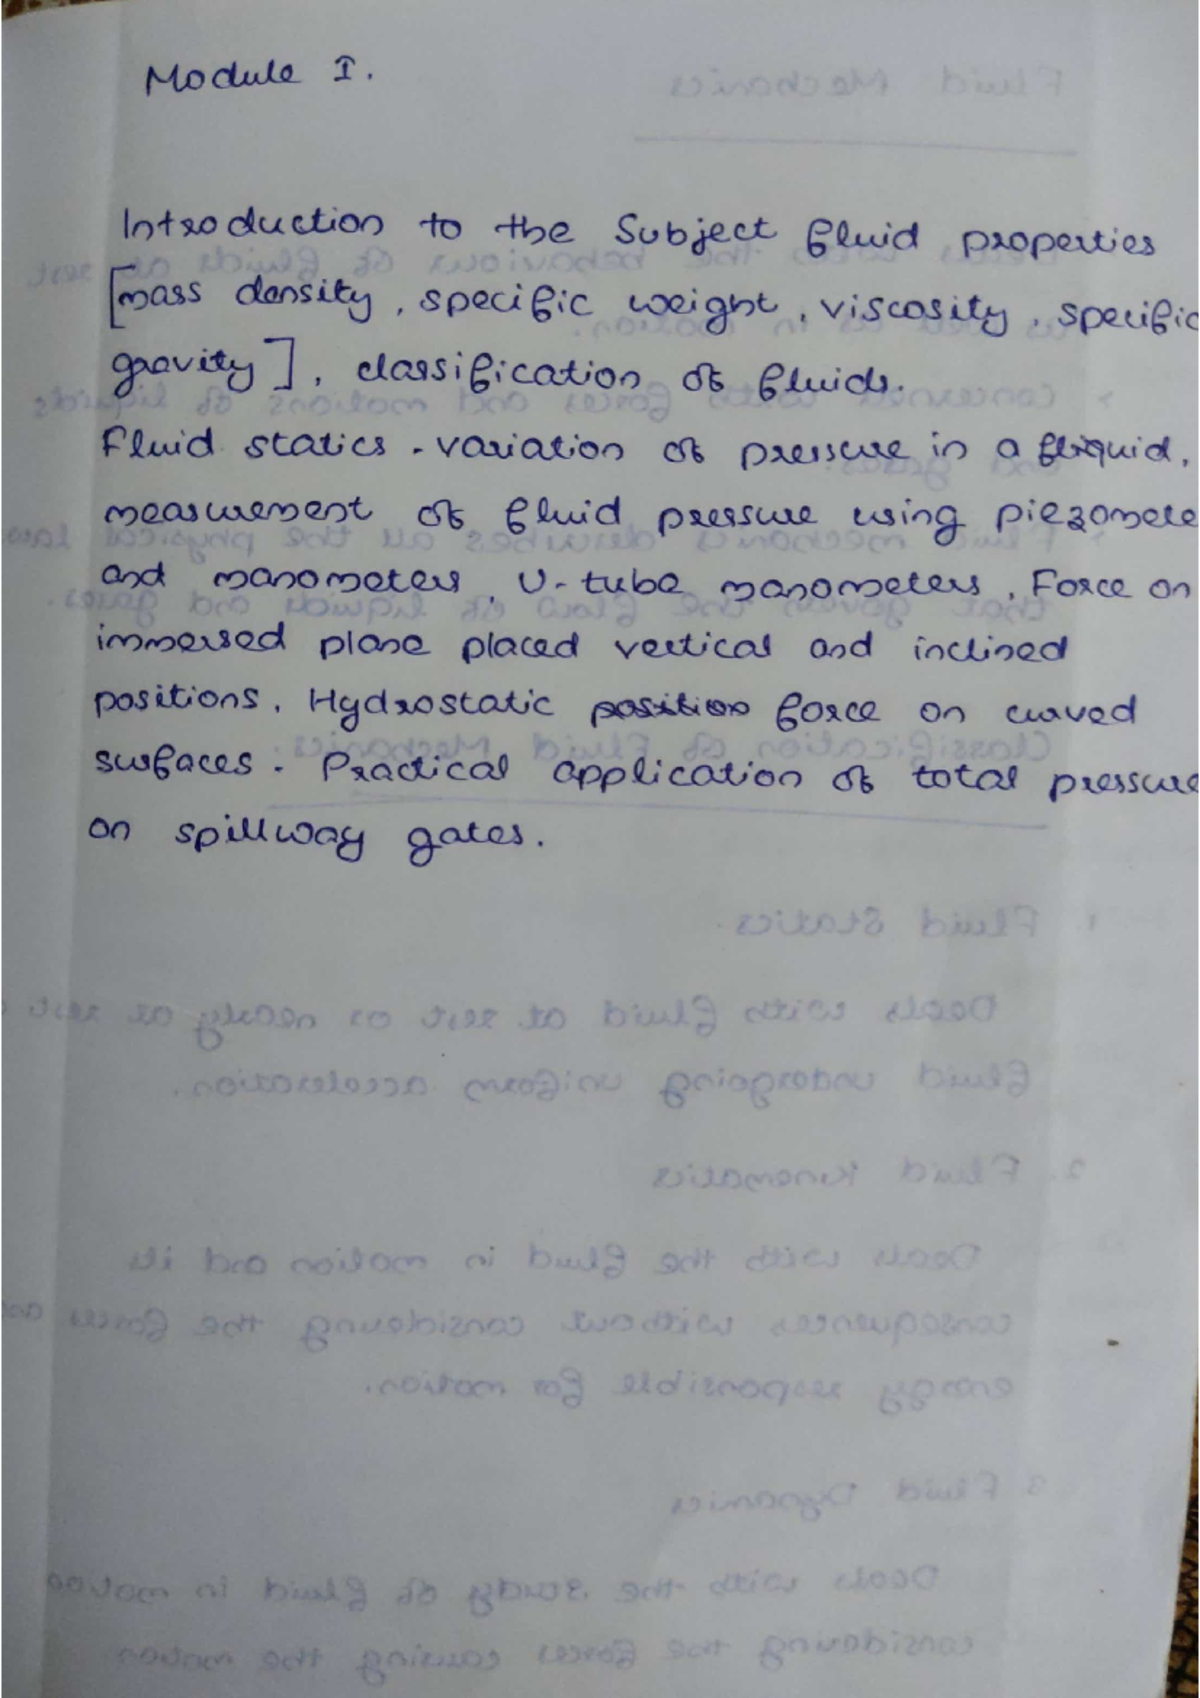 Module I.
Introduction to the Subject fluid properties
[mass density, specific weight, viscosity, specific
gravity], classification of fluids.
Fluid statics - variation of pressure in a liquid,
measurement of fluid pressure using piezomete
and manometers, U-tube manometers, Force on
immersed plane placed vertical and inclined
positions, Hydrostatic position force on curved
surfaces. Practical application of total pressure
on spillway gates.